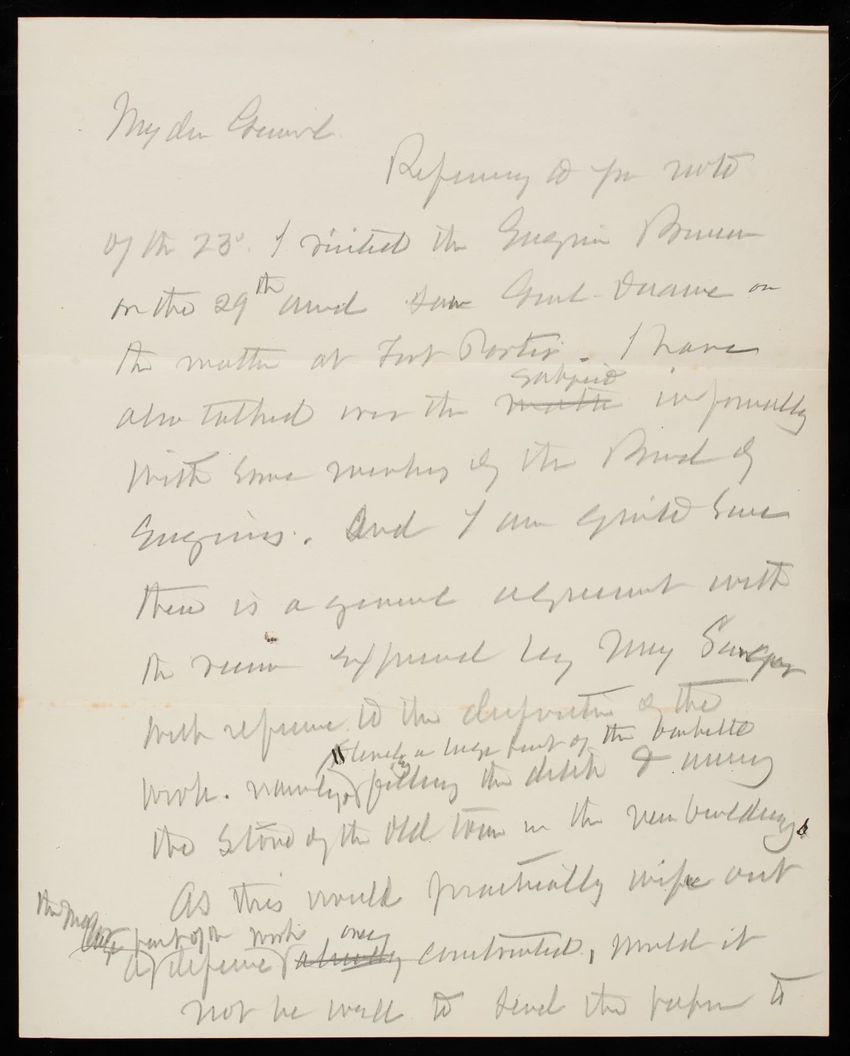 My dear General.
Referring to your note
of the 23d. I visited the Engineer Bureau
on the 29th and saw Genl. Duane on
the matter at Fort Porter. I have
also talked over the subject matter informally
with some members of the Board of
Engineers. And I am quite sure
there is a general agreement with
the views expressed by
with reference to the disposition of the
work. namely, a large part of the barbette
filling the ditch & using
the stone of the old tower in the new buildings.
As this would practically wipe out
the part of the work
defensive once already constructed, would it
not be well to send the paper to